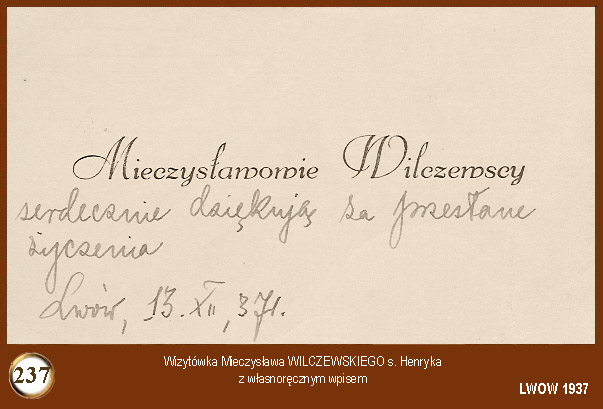 Mieczysławowie Wilczewscy
serdecznie dziękują za przesłane
życzenia
Lwów, 13. XII, 37r.
237
Wizytówka Mieczysława WILCZEWSKIEGO s. Henryka
z własnoręcznym wpisem
LWOW 1937